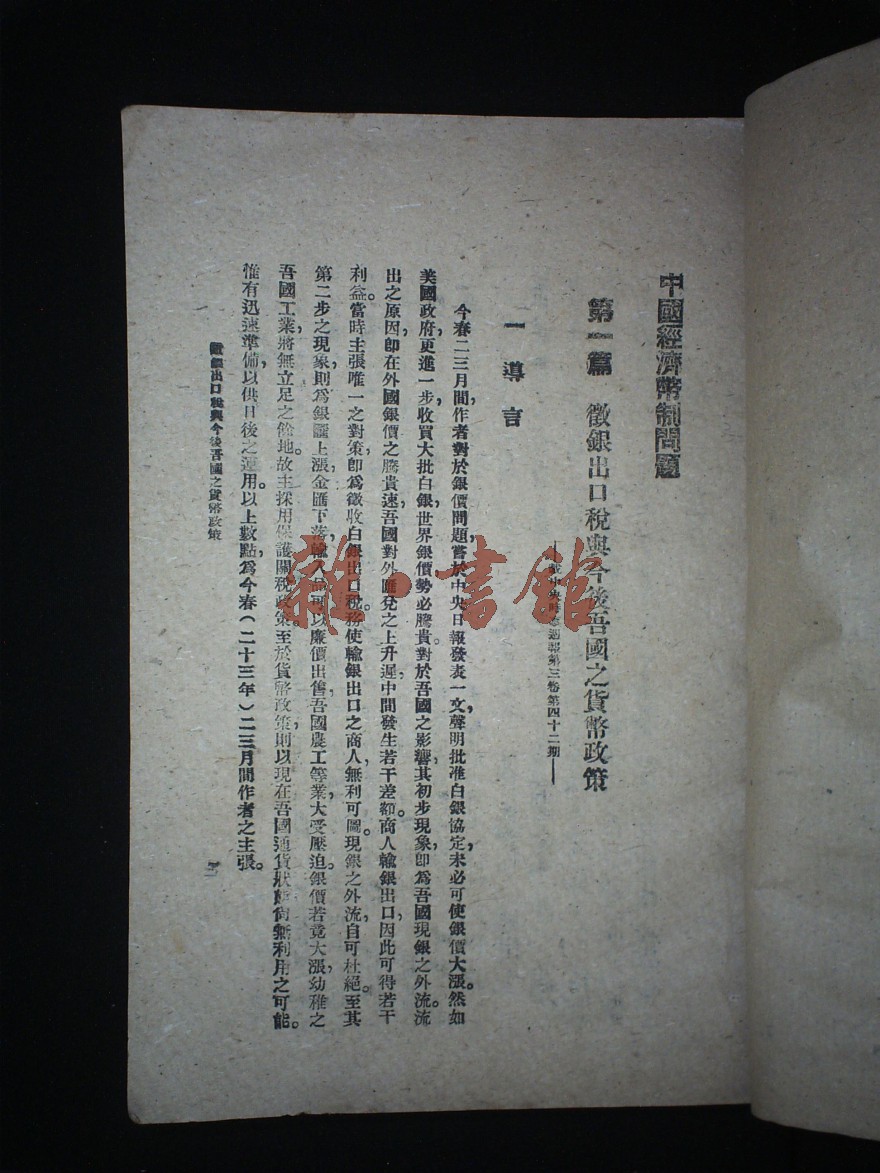 中國經濟幣制問題
第一篇 徵銀出口稅與今後吾國之貨幣政策
——載中央時事週報第三卷第四十二期——
一 導言
今春二三月間，作者對於銀價問題，嘗於中央日報發表一文，聲明批准白銀協定，未必可使銀價大漲。然如
美國政府，更進一步，收買大批白銀，世界銀價勢必騰貴。對於吾國之影響，其初步現象，卽爲吾國現銀之外流。流
出之原因，卽在外國銀價之騰貴速，吾國對外匯兌之上升遲，中間發生若干差額，商人輸銀出口，因此可得若干
利益。當時主張唯一之對策，卽爲徵收白銀出口稅，務使輸銀出口之商人，無利可圖。現銀之外流，自可杜絕。至其
第二步之現象，則爲銀匯上漲，金匯下落，輸入品可以廉價出售，吾國農工等業，大受壓迫。銀價若竟大漲，幼稚之
吾國工業，將無立足之餘地。故主採用保護關稅政策。至於貨幣政策，則以現在吾國通貨狀態，尙無利用之可能。
惟有迅速準備，以供日後之運用。以上數點，爲今春（二十三年）二三月間作者之主張。
徵銀出口稅與今後吾國之貨幣政策
雜·書館